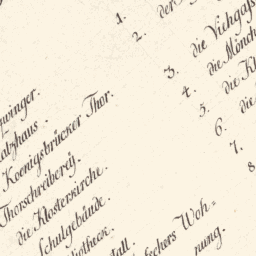 1.
2. der
3. die Viehgaß
4. die Mönch
5. die Kl
6. die
7.
8
zwinger.
Koenigsbrücker Thor.
Thorschreiberey.
die Klosterkirche.
Schulgebäude.
bliotheck.
stall.
schers Woh=
nung.